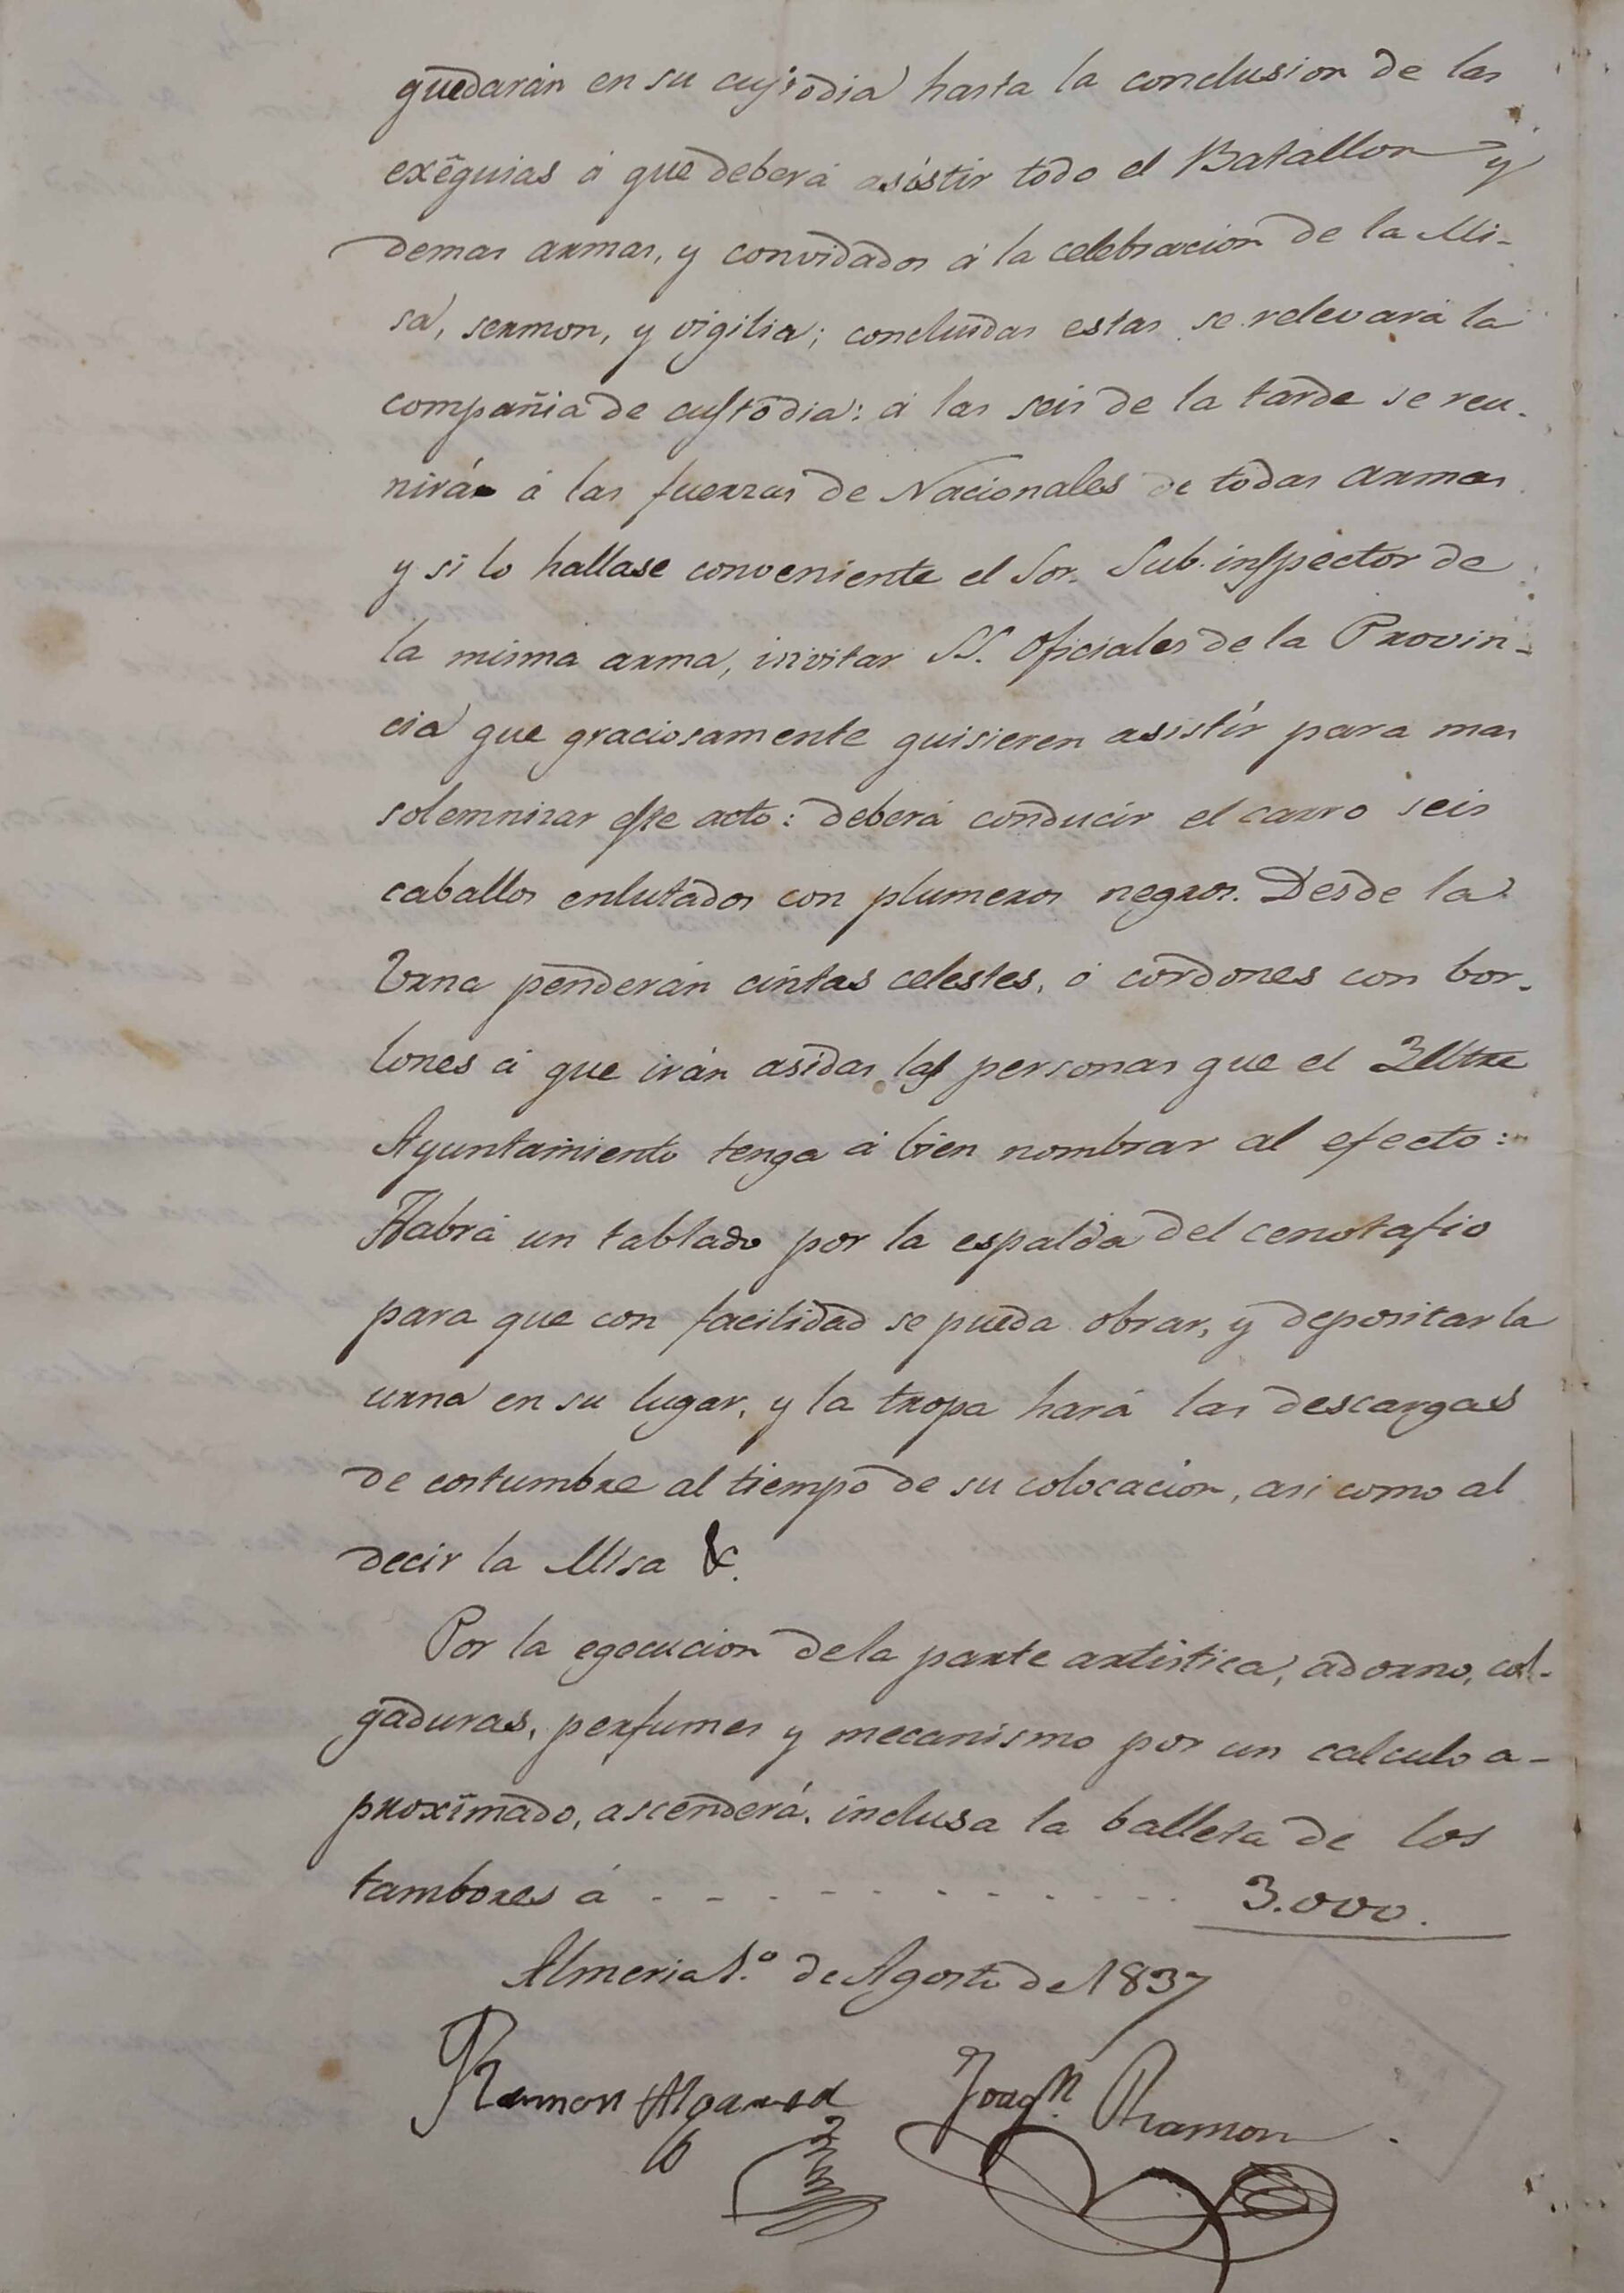 quedarán en su custodia hasta la conclusion de las
exêquias á que deberá asistir todo el Batallon y
demas armas, y convidados á la celebracion de la Mi-
sa, sermon, y vigilia; concluidas estas se relevará la
compañia de custodia: á las seis de la tarde se reu-
nirán á las fuerzas de Nacionales de todas armas
y si lo hallase conveniente el Sor. Sub-inspector de
la misma arma, invitar SS. Oficiales de la Provin-
cia que graciosamente quisieren asistir para mas
solemnizar este acto: deberá conducir el carro seis
caballos enlutados con plumeros negros. Desde la
Urna penderán cintas celestes, ó cordones con bor-
lones á que irán asidas las personas que el Illtre
Ayuntamiento tenga á bien nombrar al efecto:
Habrá un tablado por la espalda del cenotafio
para que con facilidad se pueda obrar, y depositar la
urna en su lugar, y la tropa hará las descargas
de costumbre al tiempo de su colocacion, asi como al
decir la Misa &.
Por la egecucion de la parte artistica, adorno, col-
gaduras, perfumes y mecanismo por un calculo a-
proxîmado, ascenderá, inclusa la balleta de los
tambores á - - - - - - - - - - - - 3.000.
Almeria 1.º de Agosto de 1837
Ramon Algarra Joaqn. Ramon